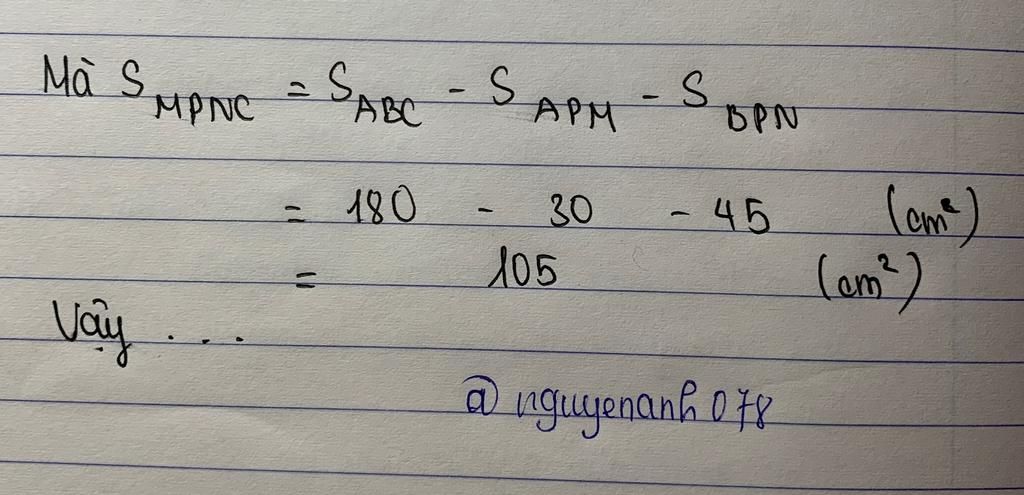 Mà S_MPNC = S_ABC - S_APM - S_BPN
= 180 - 30 - 45 (cm²)
= 105 (cm²)
Vậy . . . .
@ nguyenanh 078